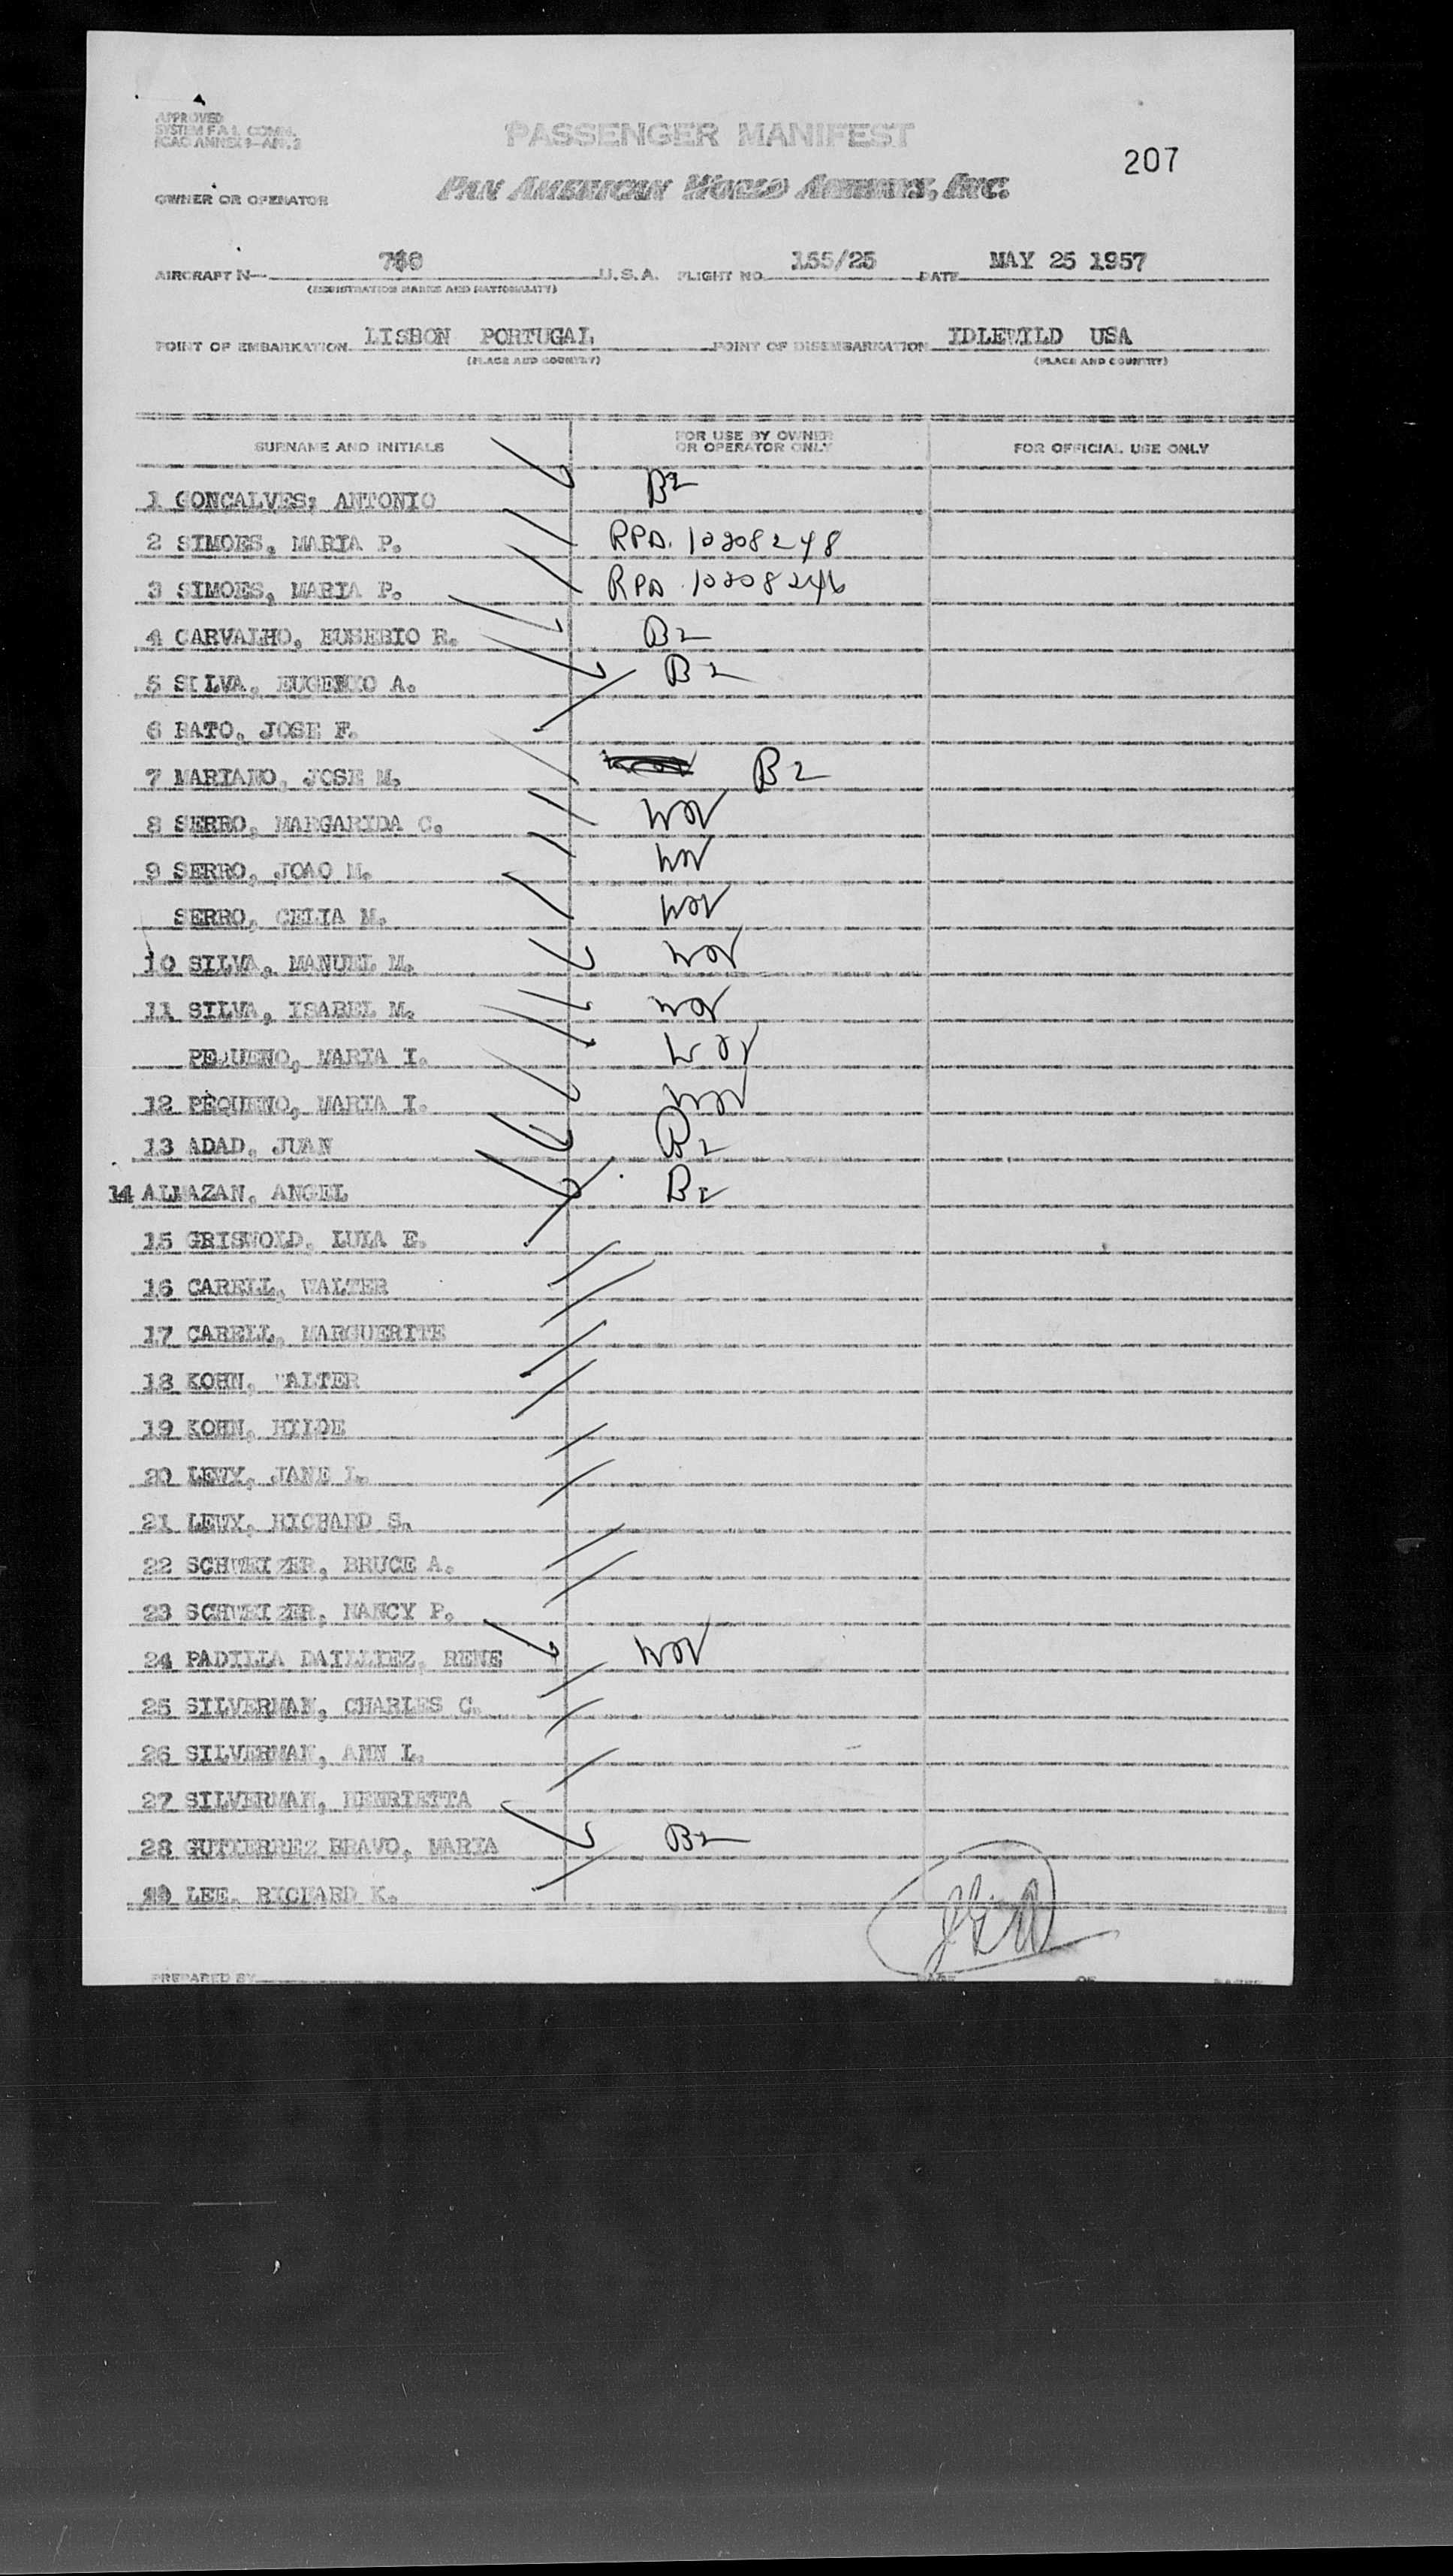 APPROVED
SYSTEM F A L COMM.
ICAO ANNEX 9-APP. 3
PASSENGER MANIFEST
207
OWNER OR OPERATOR
PAN AMERICAN WORLD AIRWAYS, INC.
AIRCRAFT N— U.S.A. FLIGHT NO. 155/25 DATE MAY 25 1957
(REGISTRATION MARKS AND NATIONALITY)
POINT OF EMBARKATION LISBON PORTUGAL POINT OF DISEMBARKATION IDLEWILD USA
(PLACE AND COUNTRY) (PLACE AND COUNTRY)
SURNAME AND INITIALS FOR USE BY OWNER OR OPERATOR ONLY FOR OFFICIAL USE ONLY
1 GONCALVES; ANTONIO B2
2 SIMOES, MARIA P. RPA. 10208248
3 SIMOES, MARIA P. RPA. 10208246
4 CARVALHO, EUSEBIO R. B2
5 SILVA, EUGENIO A. B2
6 PATO, JOSE F.
7 MARIANO, JOSE M. B2
8 SERRO, MARGARIDA C.
9 SERRO, JOAO M.
SERRO, CELIA M.
10 SILVA, MANUEL M.
11 SILVA, ISABEL M.
PEQUENO, MARIA I.
12 PEQUENO, MARIA I.
13 ADAD, JUAN B2
14 ALMAZAN, ANGEL B2
15 GRISWOLD, LULA E.
16 CARELL, WALTER
17 CARELL, MARGUERITE
18 KOHN, WALTER
19 KOHN, HILDE
20 LEWY, JANE L.
21 LEWY, RICHARD S.
22 SCHWEIZER, BRUCE A.
23 SCHWEIZER, NANCY P.
24 PADILLA DAILLIEZ, RENE
25 SILVERMAN, CHARLES C.
26 SILVERMAN, ANN L.
27 SILVERMAN, HENRIETTA
28 GUTIERREZ BRAVO, MARIA B2
29 LEE, RICHARD K.
PREPARED BY PAGE OF PAGES